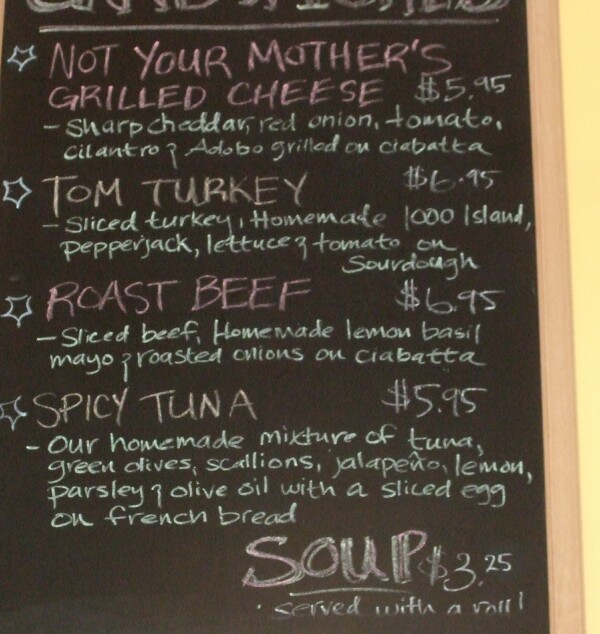 SANDWICHES
NOT YOUR MOTHER'S
GRILLED CHEESE $5.95
- Sharp cheddar, red onion, tomato,
cilantro & Adobo grilled on ciabatta
TOM TURKEY $6.95
- Sliced turkey, Homemade 1000 Island,
pepperjack, lettuce & tomato on
Sourdough
ROAST BEEF $6.95
- Sliced beef, Homemade lemon basil
mayo & roasted onions on ciabatta
SPICY TUNA $5.95
- Our homemade mixture of tuna,
green olives, scallions, jalapeño, lemon,
parsley & olive oil with a sliced egg
on french bread
SOUP $3.25
· served with a roll!